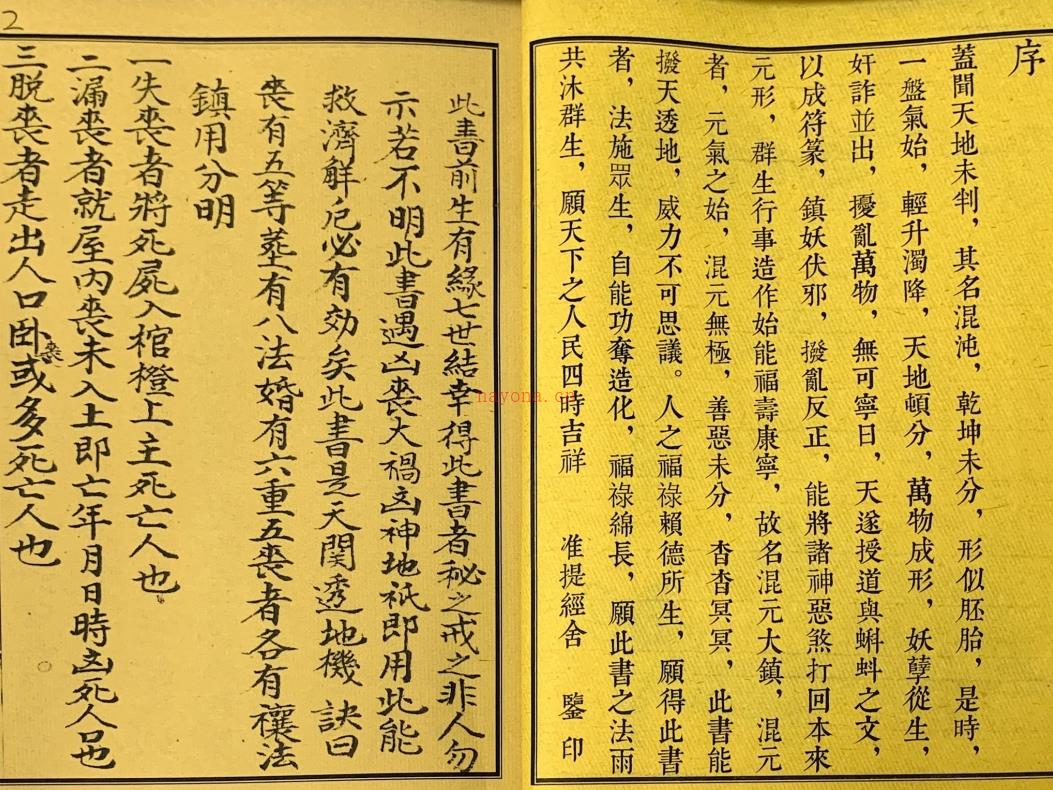 序
蓋聞天地未判，其名混沌，乾坤未分，形似胚胎，是時，
一盤氣始，輕升濁降，天地頓分，萬物成形，妖孽從生，
奸詐並出，擾亂萬物，無可寧日，天遂授道與蝌蚪之文，
以成符篆，鎮妖伏邪，撥亂反正，能將諸神惡煞打回本來
元形，群生行事造作始能福壽康寧，故名混元大鎮，混元
者，元氣之始，混元無極，善惡未分，杳杳冥冥，此書能
撥天透地，威力不可思議。人之福祿賴德所生，願得此書
者，法施眾生，自能功奪造化，福祿綿長，願此書之法雨
共沐群生，願天下之人民四時吉祥 准提經舍 鑒印
2
此書前生有緣七世結幸得此書者秘之戒之非人勿
示若不明此書遇凶喪大禍凶神地祇即用此能
救濟解厄必有効矣此書是天関透地機 訣曰
喪有五等墓有八法婚有六重五喪者各有禳法
鎮用分明
一失喪者將死屍入棺橙上主死亡人也
二漏喪者就屋內喪未入土即亡年月日時凶死人口也
三脱喪者走出人口卧喪或多死亡人也
nayona.cn